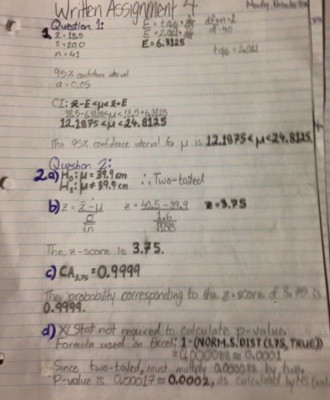 Written Assignment 4
Question 1:
1. x̄ = 18.5
s = 20.0
n = 41
E = 6.3125
95% confidence interval
α = 0.05
CI: x̄-E<μ<x̄+E
12.1875<μ<24.8125
The 95% confidence interval for μ is 12.1875<μ<24.8125.
Question 2:
2. a) H₀: μ = 39.9 cm ∴ Two-tailed
μ ≠ 39.9 cm
b) z = x̄ - μ z = 40.5-39.9 z = 3.75
σ 1.6
√n √100
The z-score is 3.75.
c) CA₃.₇₅ = 0.9999
The probability corresponding to the z-score of 3.75 is
0.9999.
d) XLStat not required to calculate p-value.
Formula used on Excel: 1-(NORM.S.DIST(3.75, TRUE))
= 0.000088 ≈ 0.0001
Since two-tailed, must multiply 0.000088 by two.
P-value is 0.00017 ≈ 0.0002, as calculated by